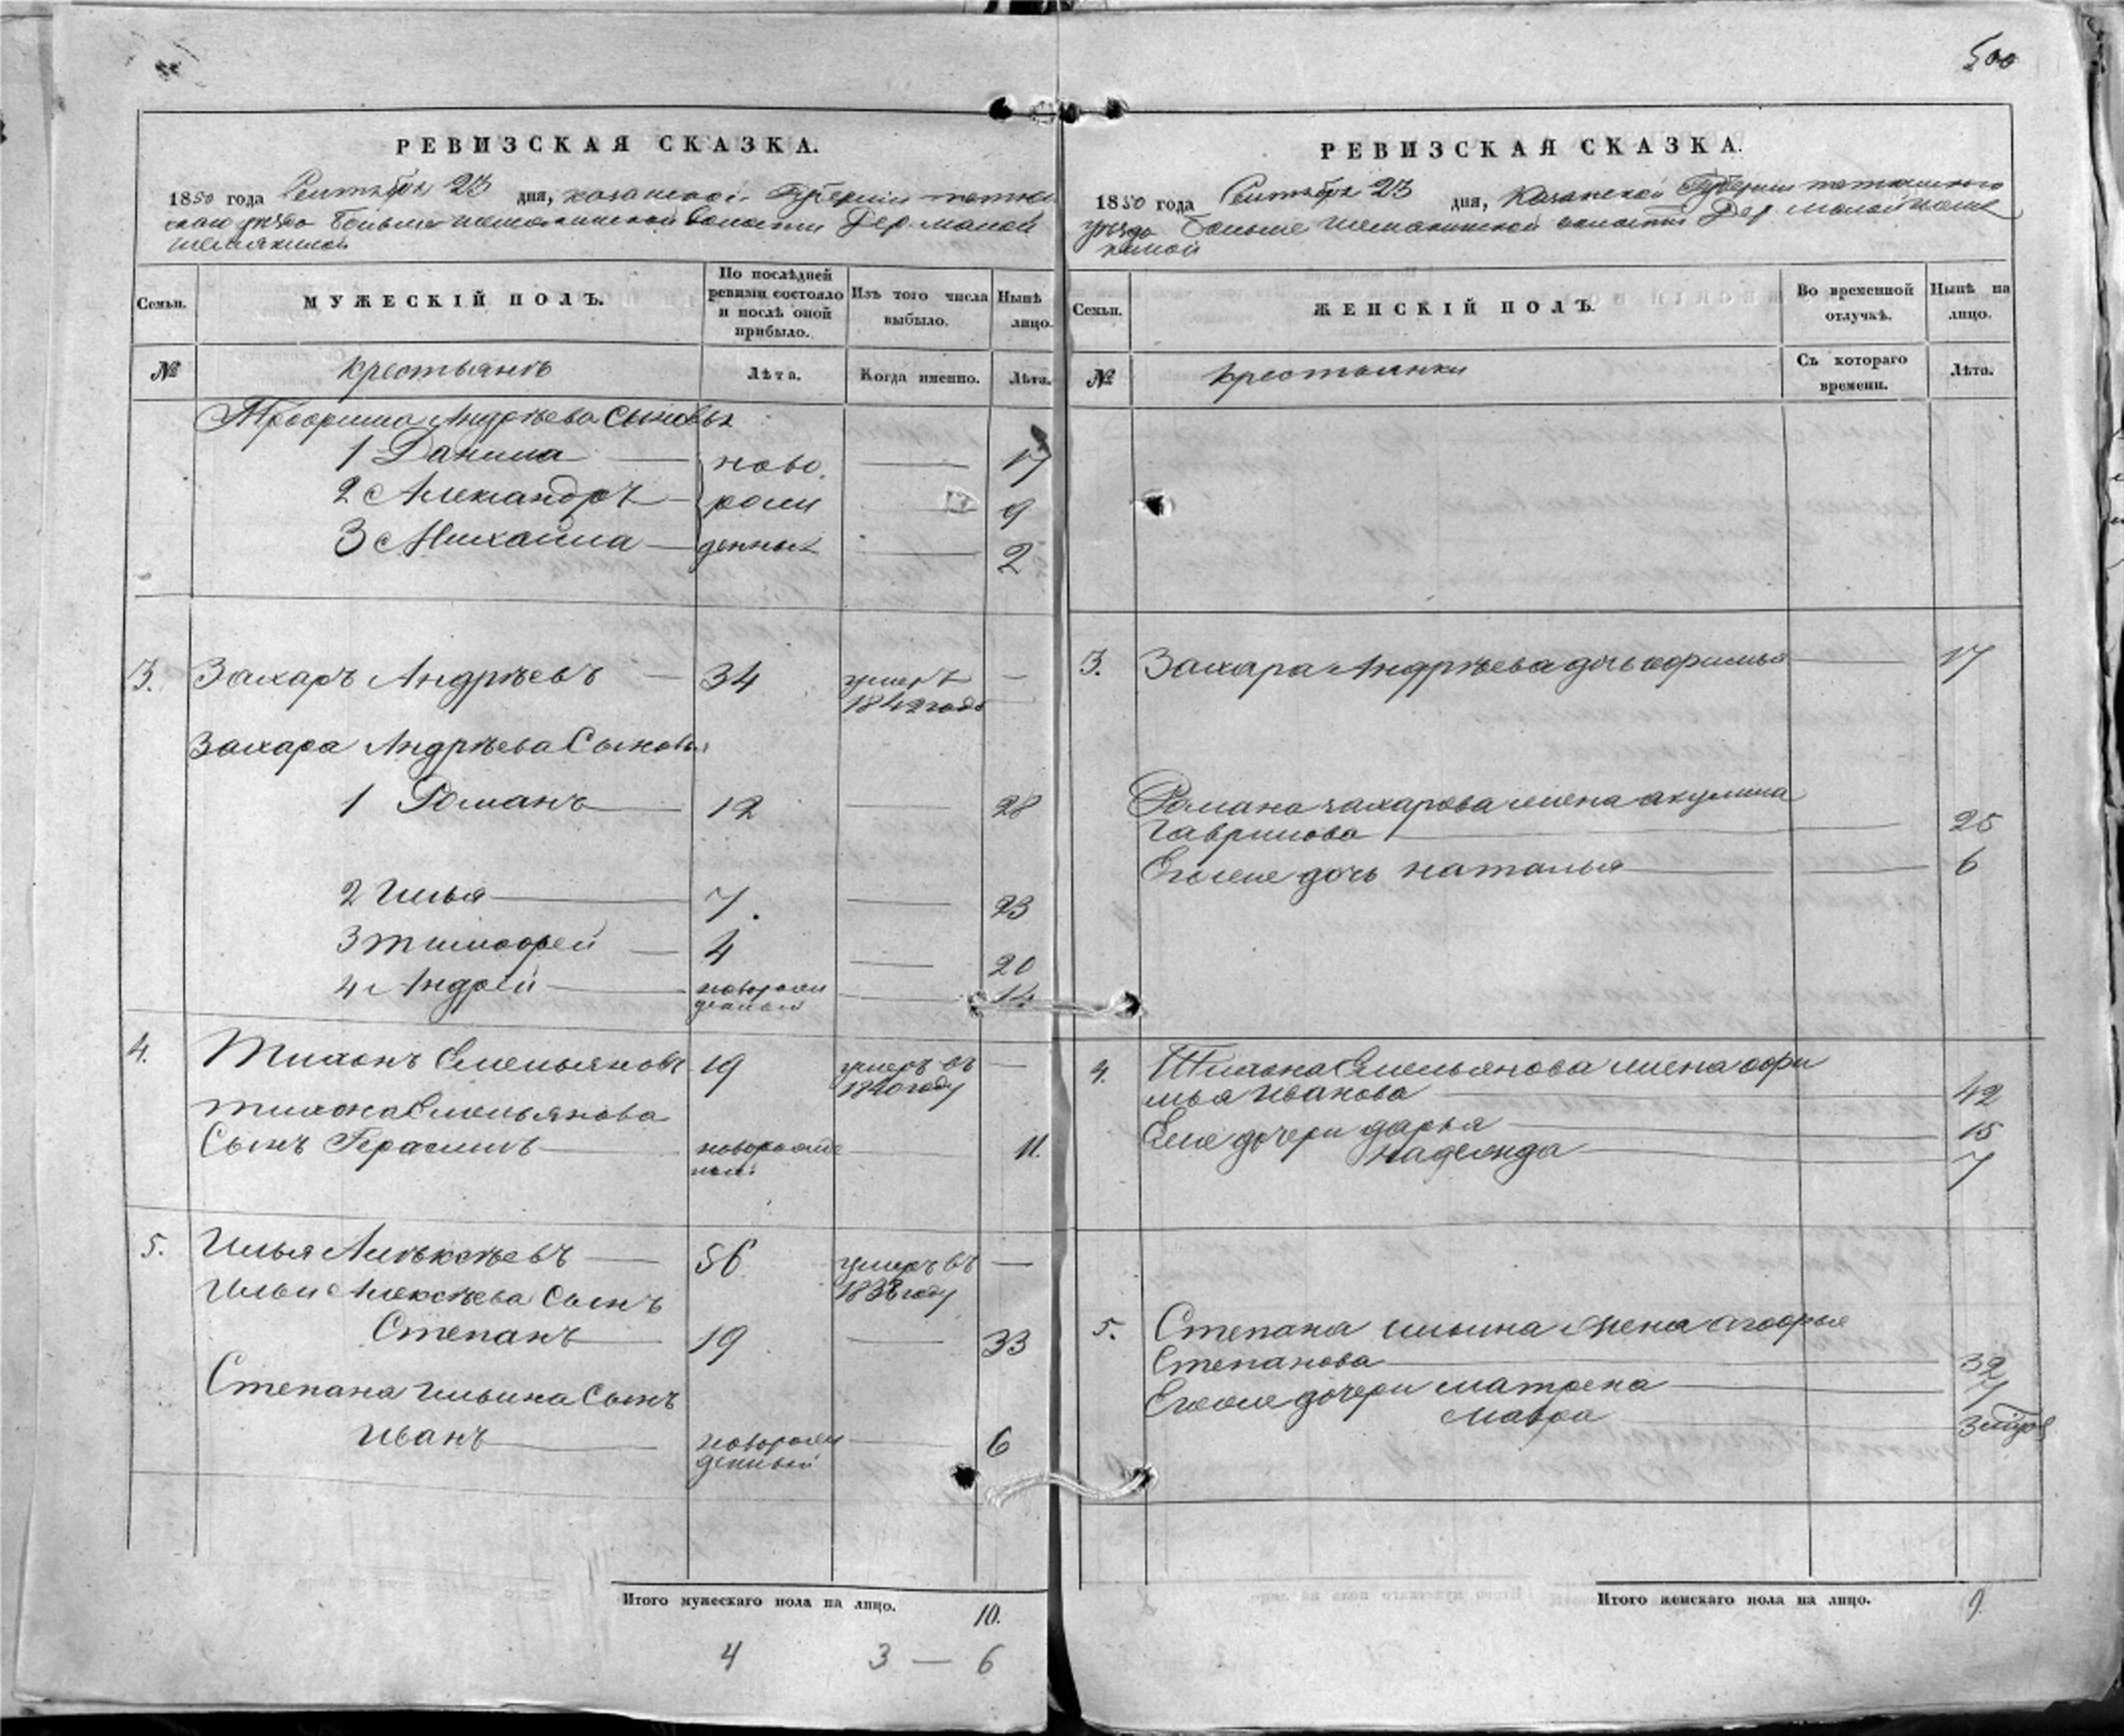 500
РЕВИЗСКАЯ СКАЗКА.
1850 года Сентября 23 дня, Казанской Губернии
уезда Больше Шемякинской волости Дер. Малой
Шемякиной
Семьи.
МУЖЕСКІЙ ПОЛЪ.
По послѣдней
ревизіи состояло
и послѣ оной
прибыло.
Изъ того числа
выбыло.
Нынѣ
лицо.
№
крестьянъ
Лѣта.
Когда именно.
Лѣта.
Трофима Андреева Сыновья
1 Данила ново 17
2 Александръ рож 9
3 Михаила денных 2
3. Захаръ Андрѣевъ 34 умеръ
1842 года
Захара Андрѣева Сыновья
1 Романъ 12 28
2 Илья 7. 23
3 тимофей 4 20
4 Андрей новорож 14
денный
4. Тихонъ Емельяновъ 19 умеръ въ
1840 году
тихона Емельянова
Сынъ Герасимъ новорожде 11.
ный
5. Илья Алексѣевъ 56 умеръ въ
1838 году
Ильи Алексѣева Сынъ
Степанъ 19 33
Степана Ильина Сынъ
Иванъ новорож 6
денный
Итого мужескаго пола на лицо. 10.
4 3 — 6
РЕВИЗСКАЯ СКАЗКА.
1850 года Сентября 23 дня, Казанской Губернии
уезда Больше Шемякинской волости Дер. Малой Шемя
киной
Семьи.
ЖЕНСКІЙ ПОЛЪ.
Во временной
отлучкѣ.
Нынѣ на
лицо.
№
крестьянки
Съ котораго
времени.
Лѣта.
3. Захара Андрѣева дочь 17
Романа захарова жена акулина
Гаврилова 25
Егоже дочь наталья 6
4. Тихона Емельянова жена офи
мья Иванова 42
Еже дочери дарья 15
надежда 7
5. Степана ильина жена агофья
Степанова 32
Егоже дочери матрена 7
мавра 3
Итого женскаго пола на лицо. 9.